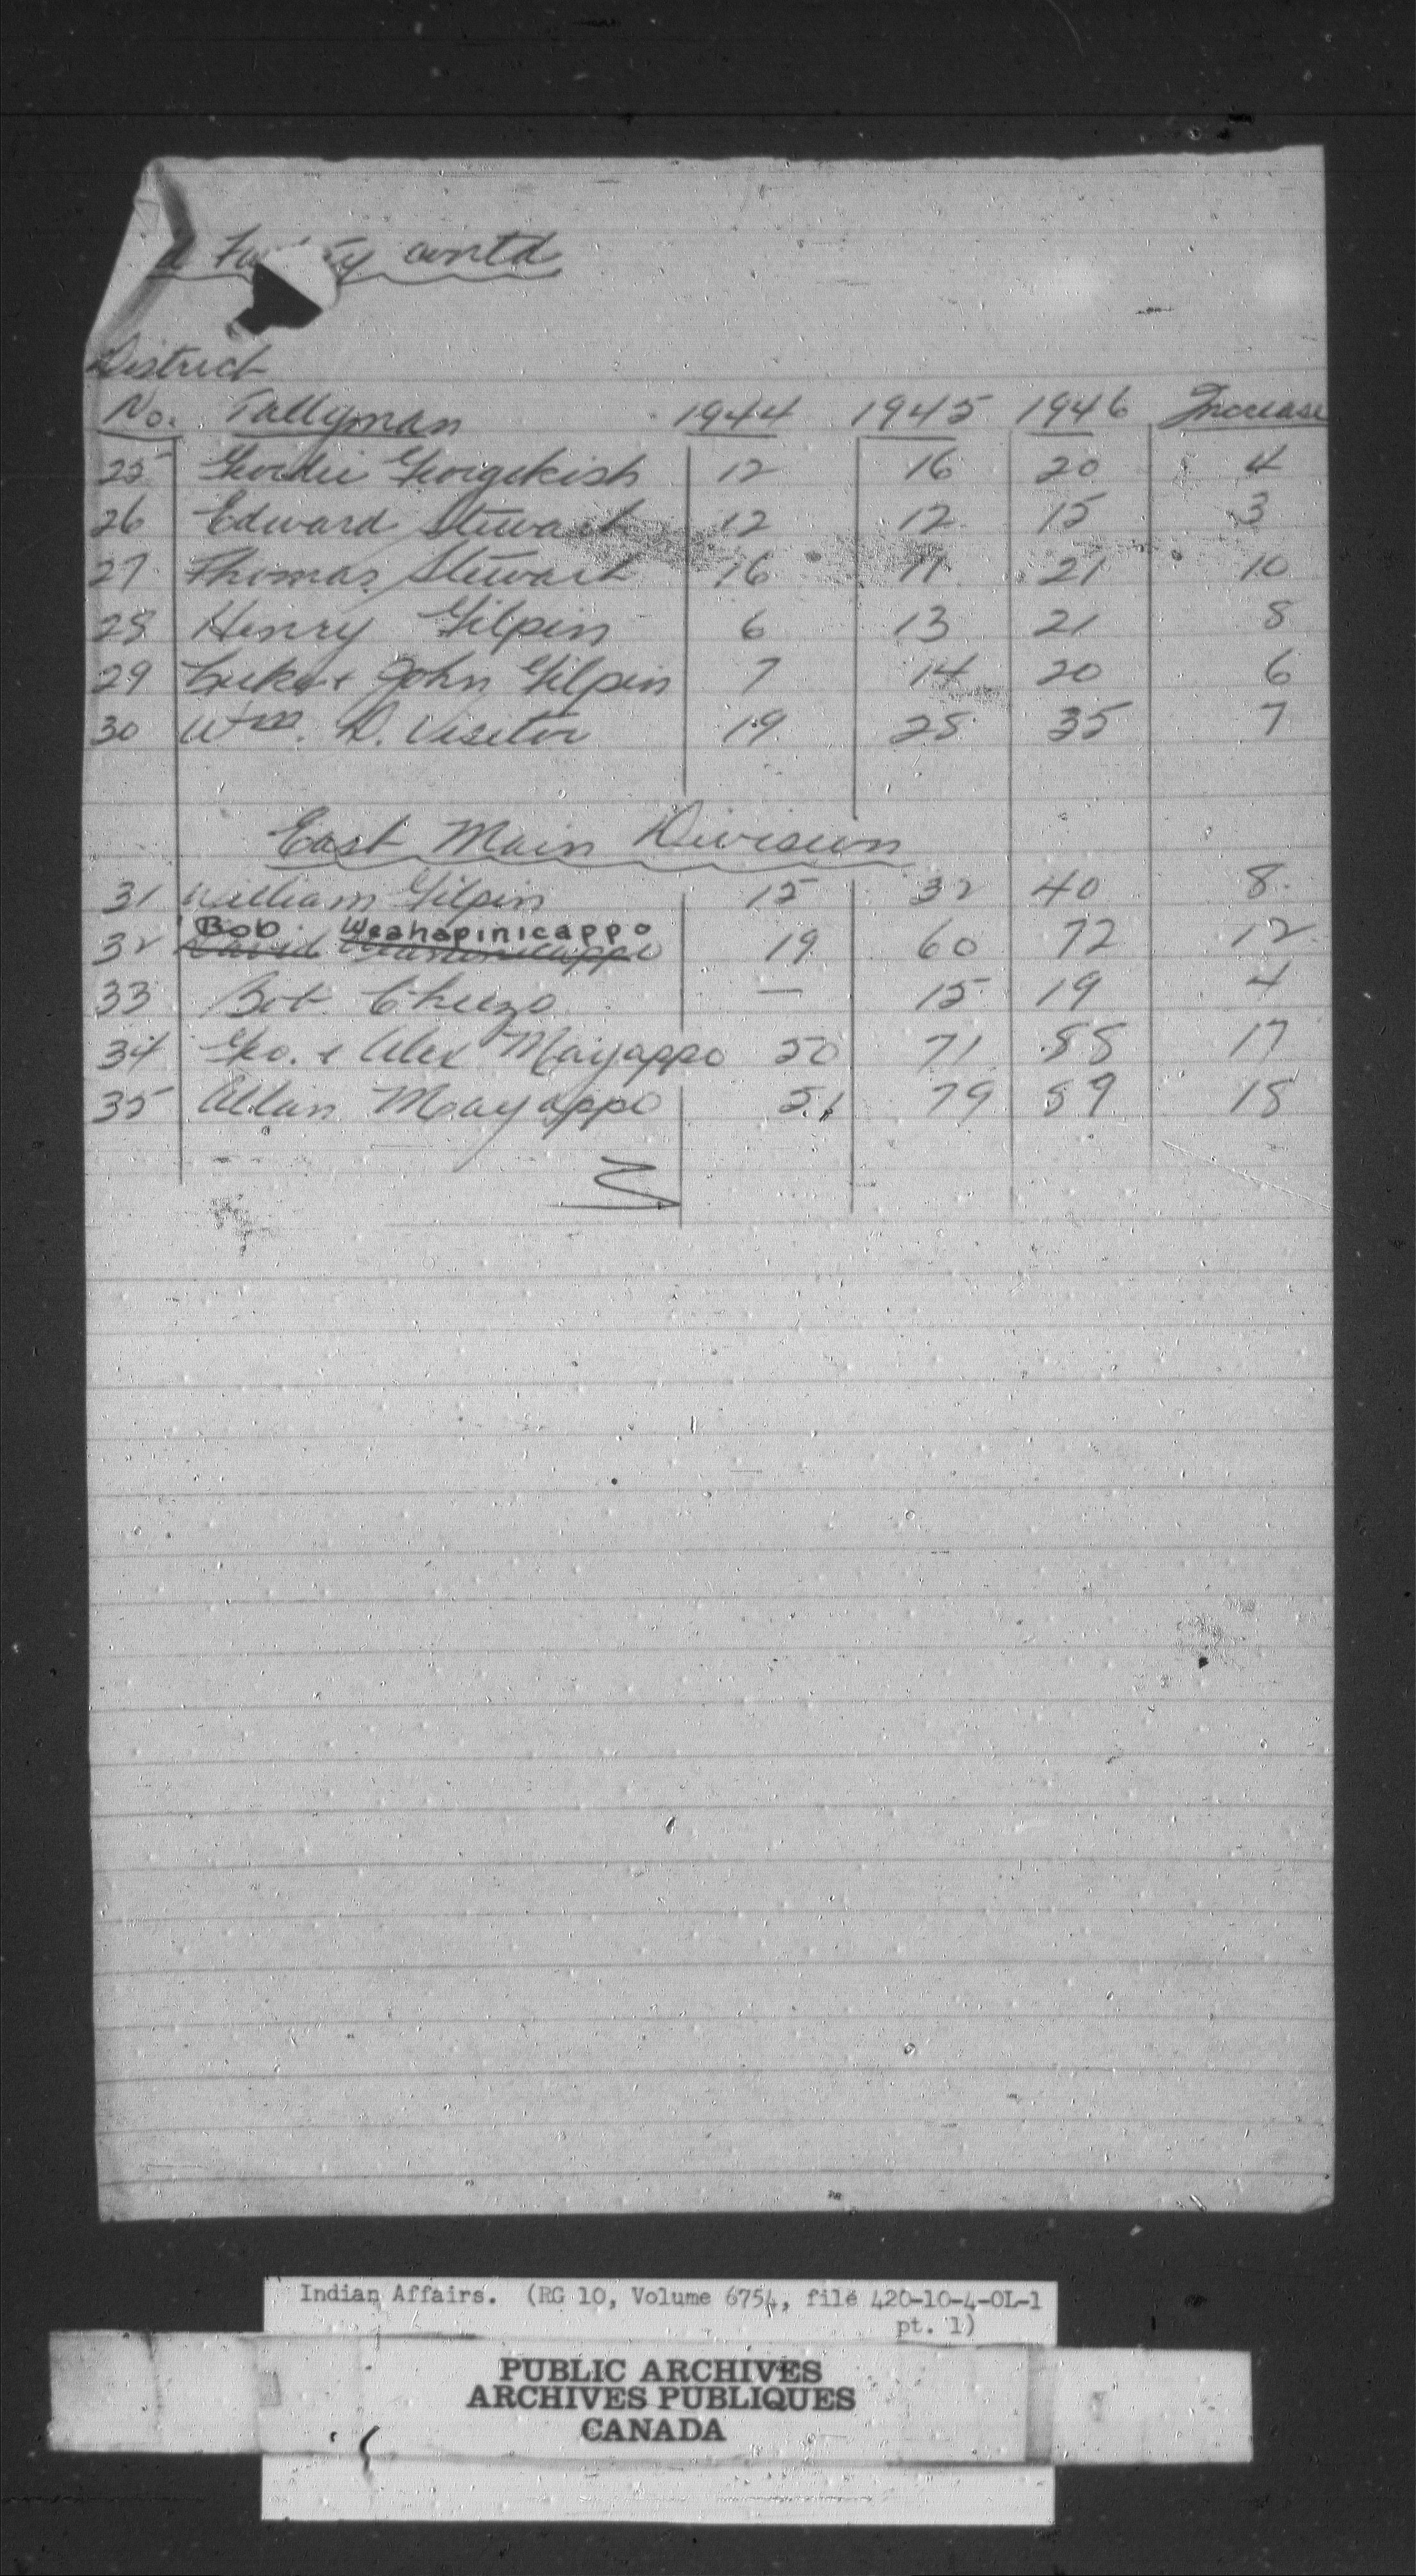 contd
District
No. Tallyman 1944 1945 1946 Increase
25 Geordie Georgekish 12 16 20 4
26 Edward Stewart 12 12 15 3
27 Thomas Stewart 16 11 21 10
28 Henry Gilpin 6 13 21 8
29 Luke & John Gilpin 7 14 20 6
30 Wm. D. Visitor 19 28 35 7
East Main Division
31 William Gilpin 15 32 40 8
Bob Weahapinicappo
32 David 19 60 72 12
33 Bob Cheezo — 15 19 4
34 Geo. & Alex Mayappo 50 71 88 17
35 Allan Mayappo 51 79 89 18
Indian Affairs. (RG 10, Volume 6754, file 420-10-4-OL-1
pt. 1)
PUBLIC ARCHIVES
ARCHIVES PUBLIQUES
CANADA